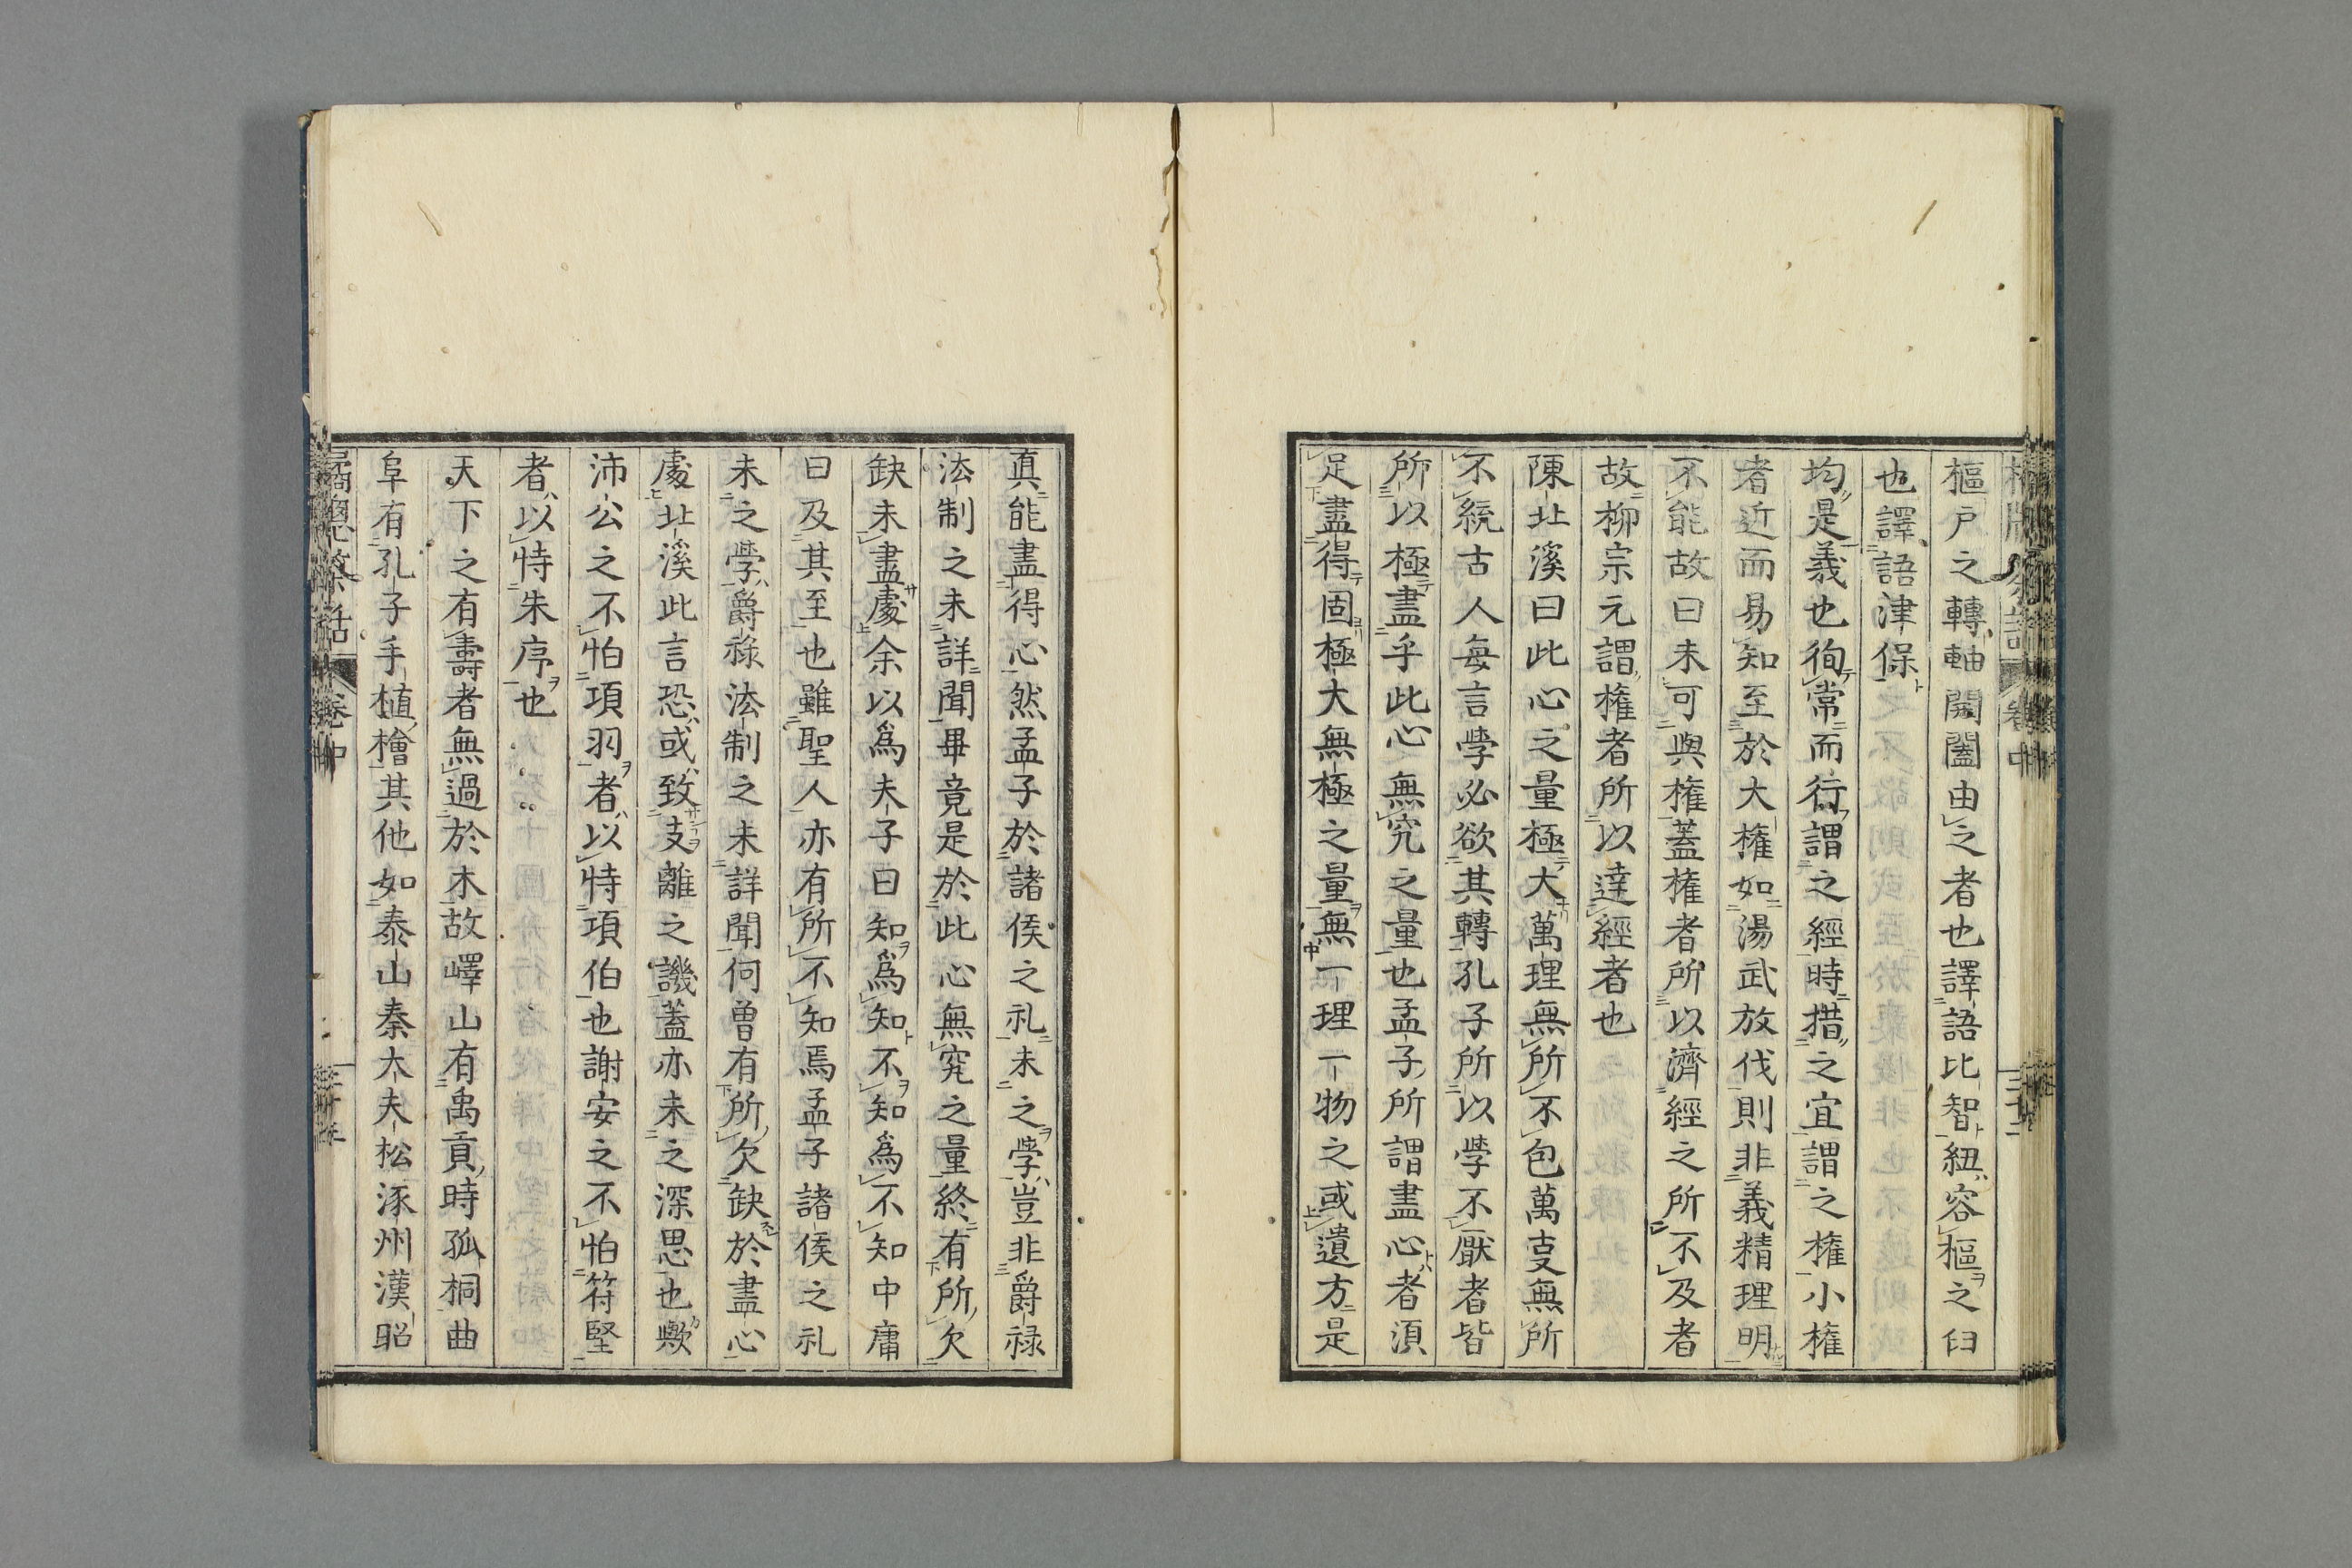 樞戸之轉軸開闔由之者也譯語比智紐容樞之臼
也譯語津保
均是義也徇常而行謂之經時措之宜謂之権小権
者近而易知至於大権如湯武放伐則非義精理明
不能故曰未可與権蓋権者所以濟經之所不及者
故柳宗元謂権者所以達經者也
陳北溪曰此心之量極大萬理無所不包萬㕝無所
不統古人每言學必欲其轉孔子所以學不厭者皆
所以極盡乎此心無究之量也孟子所謂盡心者湏
足盡得固極大無極之量無一理一物之或遺方是
真能盡得心然孟子於諸侯之礼未之學豈非爵禄
法制之未詳聞畢竟是於此心無究之量終有所欠
缺未盡處余以爲夫子曰知爲知不知爲不知中庸
曰及其至也雖聖人亦有所不知焉孟子諸侯之礼
未之學爵祿法制之未詳聞何曽有所欠缺於盡心
處北溪此言恐或致支離之譏蓋亦未之深思也歟
沛公之不怕項羽者以恃項伯也謝安之不怕符堅
者以恃朱序也
天下之有壽者無過於木故嶧山有禹貢時孤桐曲
阜有孔子手植檜其他如泰山秦大夫松涿州漢昭
卷中